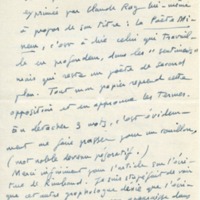 exprimé par Claude Roy lui-même
à propos de son titre : le Poète Mi-
neur, c'est à dire celui qui travail-
le en profondeur, dans les "
mais qui reste un poète de second
plan. Tout mon papier repose cette
opposition et en approuve les termes.
A en détacher 3 mots, c'est évidem-
ment me faire passer pour un
(mot noble devenu péjoratif).
Merci infiniment pour l'article sur l'écri-
ture de Rimbaud. Je suis stupéfait de voir
que et autre graphologue dise que l'écri-
dans